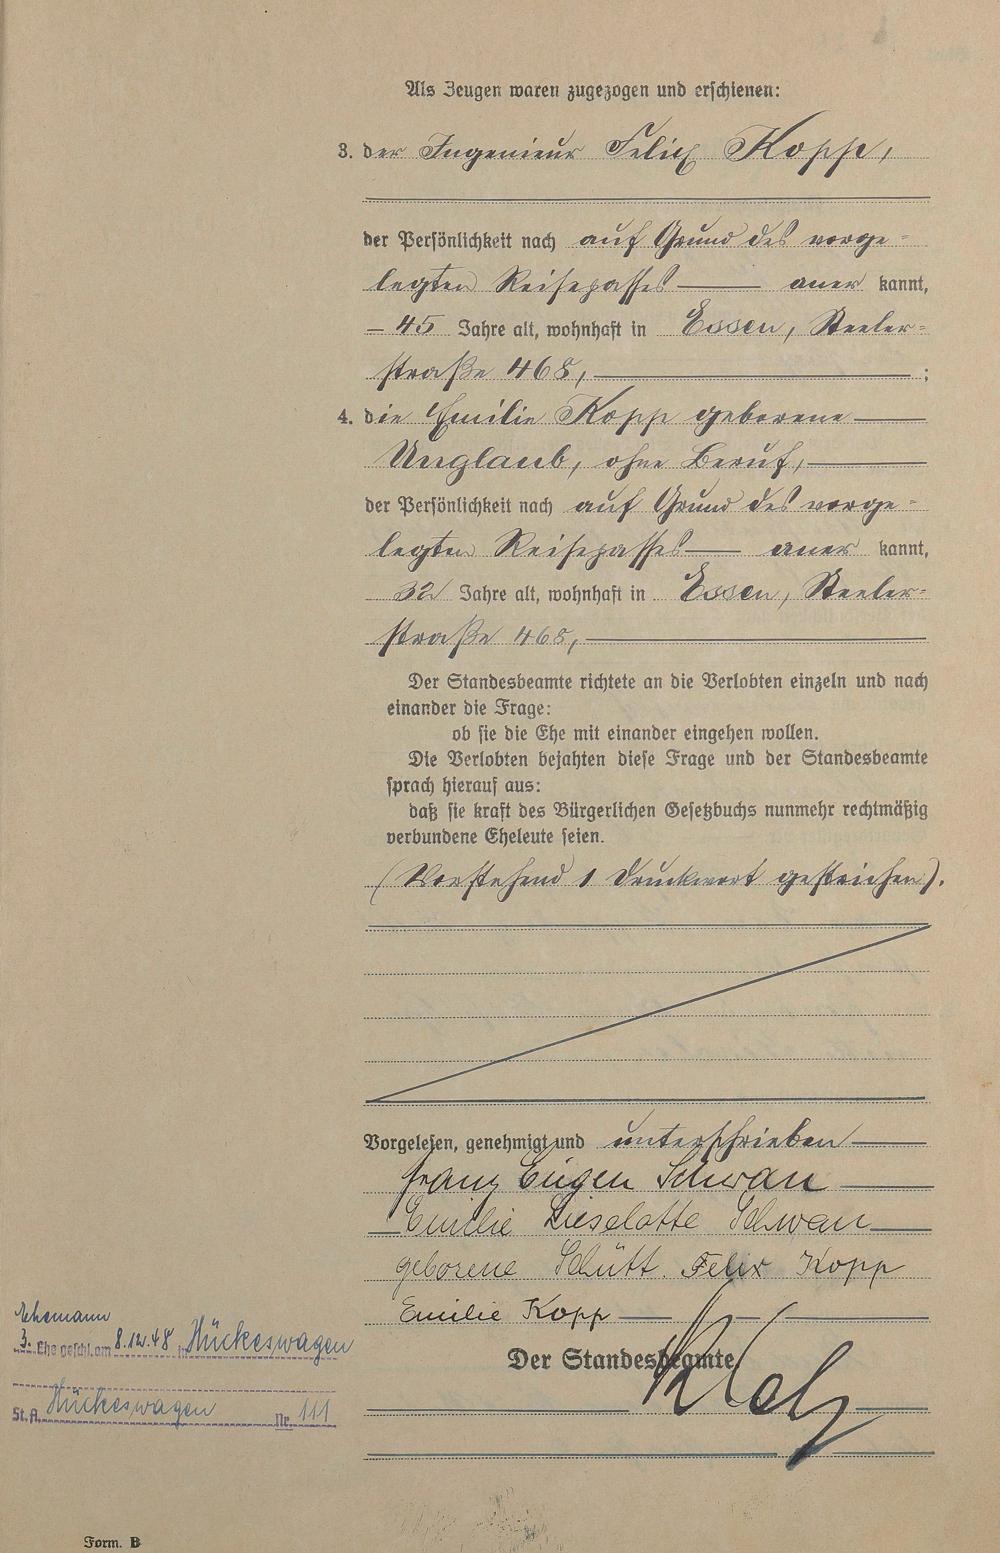 Als Zeugen waren zugezogen und erschienen:
3. der Ingenieur Felix Kopp,
der Persönlichkeit nach auf Grund des vorge-
legten Reisepasses aner kannt,
45 Jahre alt, wohnhaft in Essen, Steeler-
straße 468, ;
4. die Emilie Kopp geborene
Unglaub, ohne Beruf,
der Persönlichkeit nach auf Grund des vorge-
legten Reisepasses aner kannt,
32 Jahre alt, wohnhaft in Essen, Steeler-
straße 468,
Der Standesbeamte richtete an die Verlobten einzeln und nach
einander die Frage:
ob sie die Ehe mit einander eingehen wollen.
Die Verlobten bejahten diese Frage und der Standesbeamte
sprach hierauf aus:
daß sie kraft des Bürgerlichen Gesetzbuchs nunmehr rechtmäßig
verbundene Eheleute seien.
(Vorstehend 1 Druckwort gestrichen).
Vorgelesen, genehmigt und unterschrieben
Franz Eugen Schwan
Emilie Lieselotte Schwan
geborene Schütt. Felix Kopp
Emilie Kopp
Der Standesbeamte
Ehemann
3. Ehe geschl. am 8.12.48 in Hückeswagen
St.A. Hückeswagen Nr. 111
Form. B